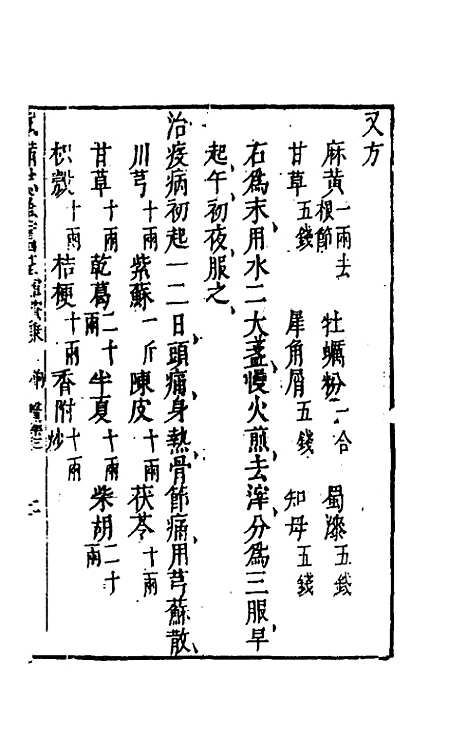 又方
麻黃一兩去根節 牡蠣粉一合 蜀漆五錢
甘草五錢 犀角屑五錢 知母五錢
右為末用水二大盞慢火煎去滓分為三服早
起午初夜服之
治疫病初起一二日頭痛身熱骨節痛用芎蘇散
川芎十兩 紫蘇一斤 陳皮十兩 茯苓十兩
甘草十兩 乾葛二十兩 半夏十兩 柴胡二十兩
枳殼十兩 桔梗十兩 香附炒十兩